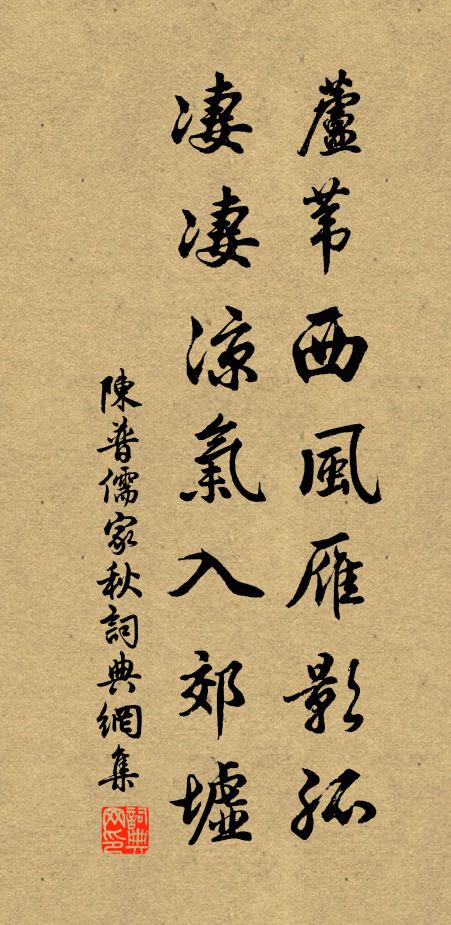 蘆葦西風雁影孤
凄凄涼氣入郊墟
陳普儒家秋詞典網集
詞典網印